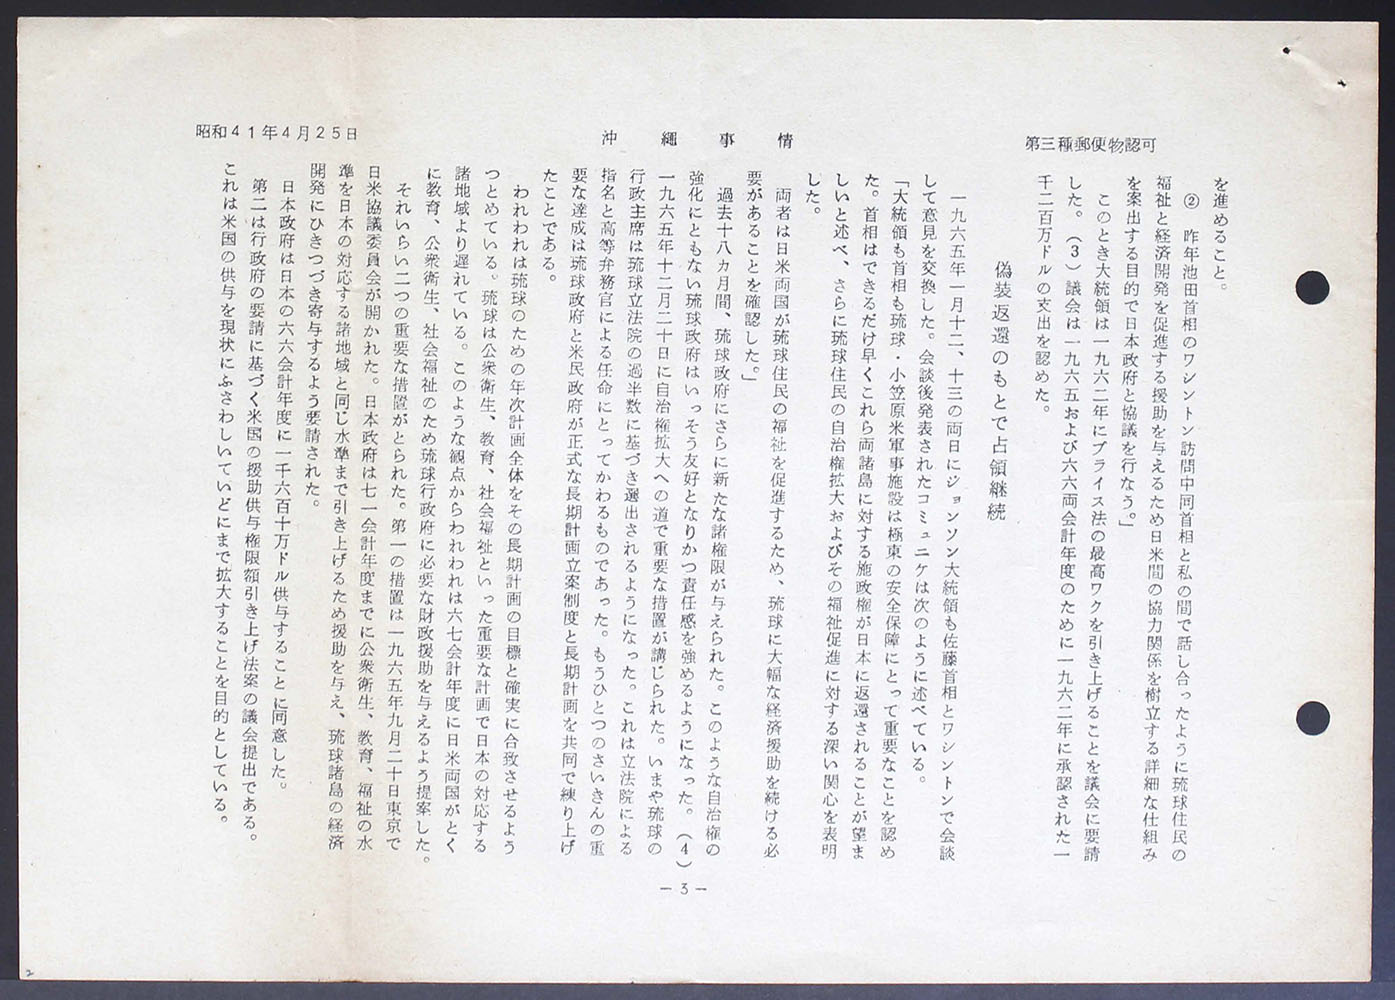 第三種郵便物認可
沖縄事情
昭和41年4月25日
を進めること。
② 昨年池田首相のワシントン訪問中同首相と私の間で話し合ったように琉球住民の
福祉と経済開発を促進する援助を与えるため日米間の協力関係を樹立する詳細な仕組み
を案出する目的で日本政府と協議を行なう。」
このとき大統領は一九六二年にプライス法の最高ワクを引き上げることを議会に要請
した。(3)議会は一九六五および六六両会計年度のために一九六二年に承認された一
千二百万ドルの支出を認めた。
偽装返還のもとで占領継続
一九六五年一月十二、十三の両日にジョンソン大統領も佐藤首相とワシントンで会談
して意見を交換した。会談後発表されたコミュニケは次のように述べている。
「大統領も首相も琉球・小笠原米軍事施設は極東の安全保障にとって重要なことを認め
た。首相はできるだけ早くこれら両諸島に対する施政権が日本に返還されることが望ま
しいと述べ、さらに琉球住民の自治権拡大およびその福祉促進に対する深い関心を表明
した。
両者は日米両国が琉球住民の福祉を促進するため、琉球に大幅な経済援助を続ける必
要があることを確認した。」
過去十八ヵ月間、琉球政府にさらに新たな諸権限が与えられた。このような自治権の
強化にともない琉球政府はいっそう友好となりかつ責任感を強めるようになった。(4)
一九六五年十二月二十日に自治権拡大への道で重要な措置が講じられた。いまや琉球の
行政主席は琉球立法院の過半数に基づき選出されるようになった。これは立法院による
指名と高等弁務官による任命にとってかわるものであった。もうひとつのさいきんの重
要な達成は琉球政府と米民政府が正式な長期計画立案制度と長期計画を共同で練り上げ
たことである。
われわれは琉球のための年次計画全体をその長期計画の目標と確実に合致させるよう
つとめている。琉球は公衆衛生、教育、社会福祉といった重要な計画で日本の対応する
諸地域より遅れている。このような観点からわれわれは六七会計年度に日米両国がとく
に教育、公衆衛生、社会福祉のため琉球行政府に必要な財政援助を与えるよう提案した。
それいらい二つの重要な措置がとられた。第一の措置は一九六五年九月二十日東京で
日米協議委員会が開かれた。日本政府は七一会計年度までに公衆衛生、教育、福祉の水
準を日本の対応する諸地域と同じ水準まで引き上げるため援助を与え、琉球諸島の経済
開発にひきつづき寄与するよう要請された。
日本政府は日本の六六会計年度に一千六百十万ドル供与することに同意した。
第二は行政府の要請に基づく米国の援助供与権限額引き上げ法案の議会提出である。
これは米国の供与を現状にふさわしいていどにまで拡大することを目的としている。
－3－
2